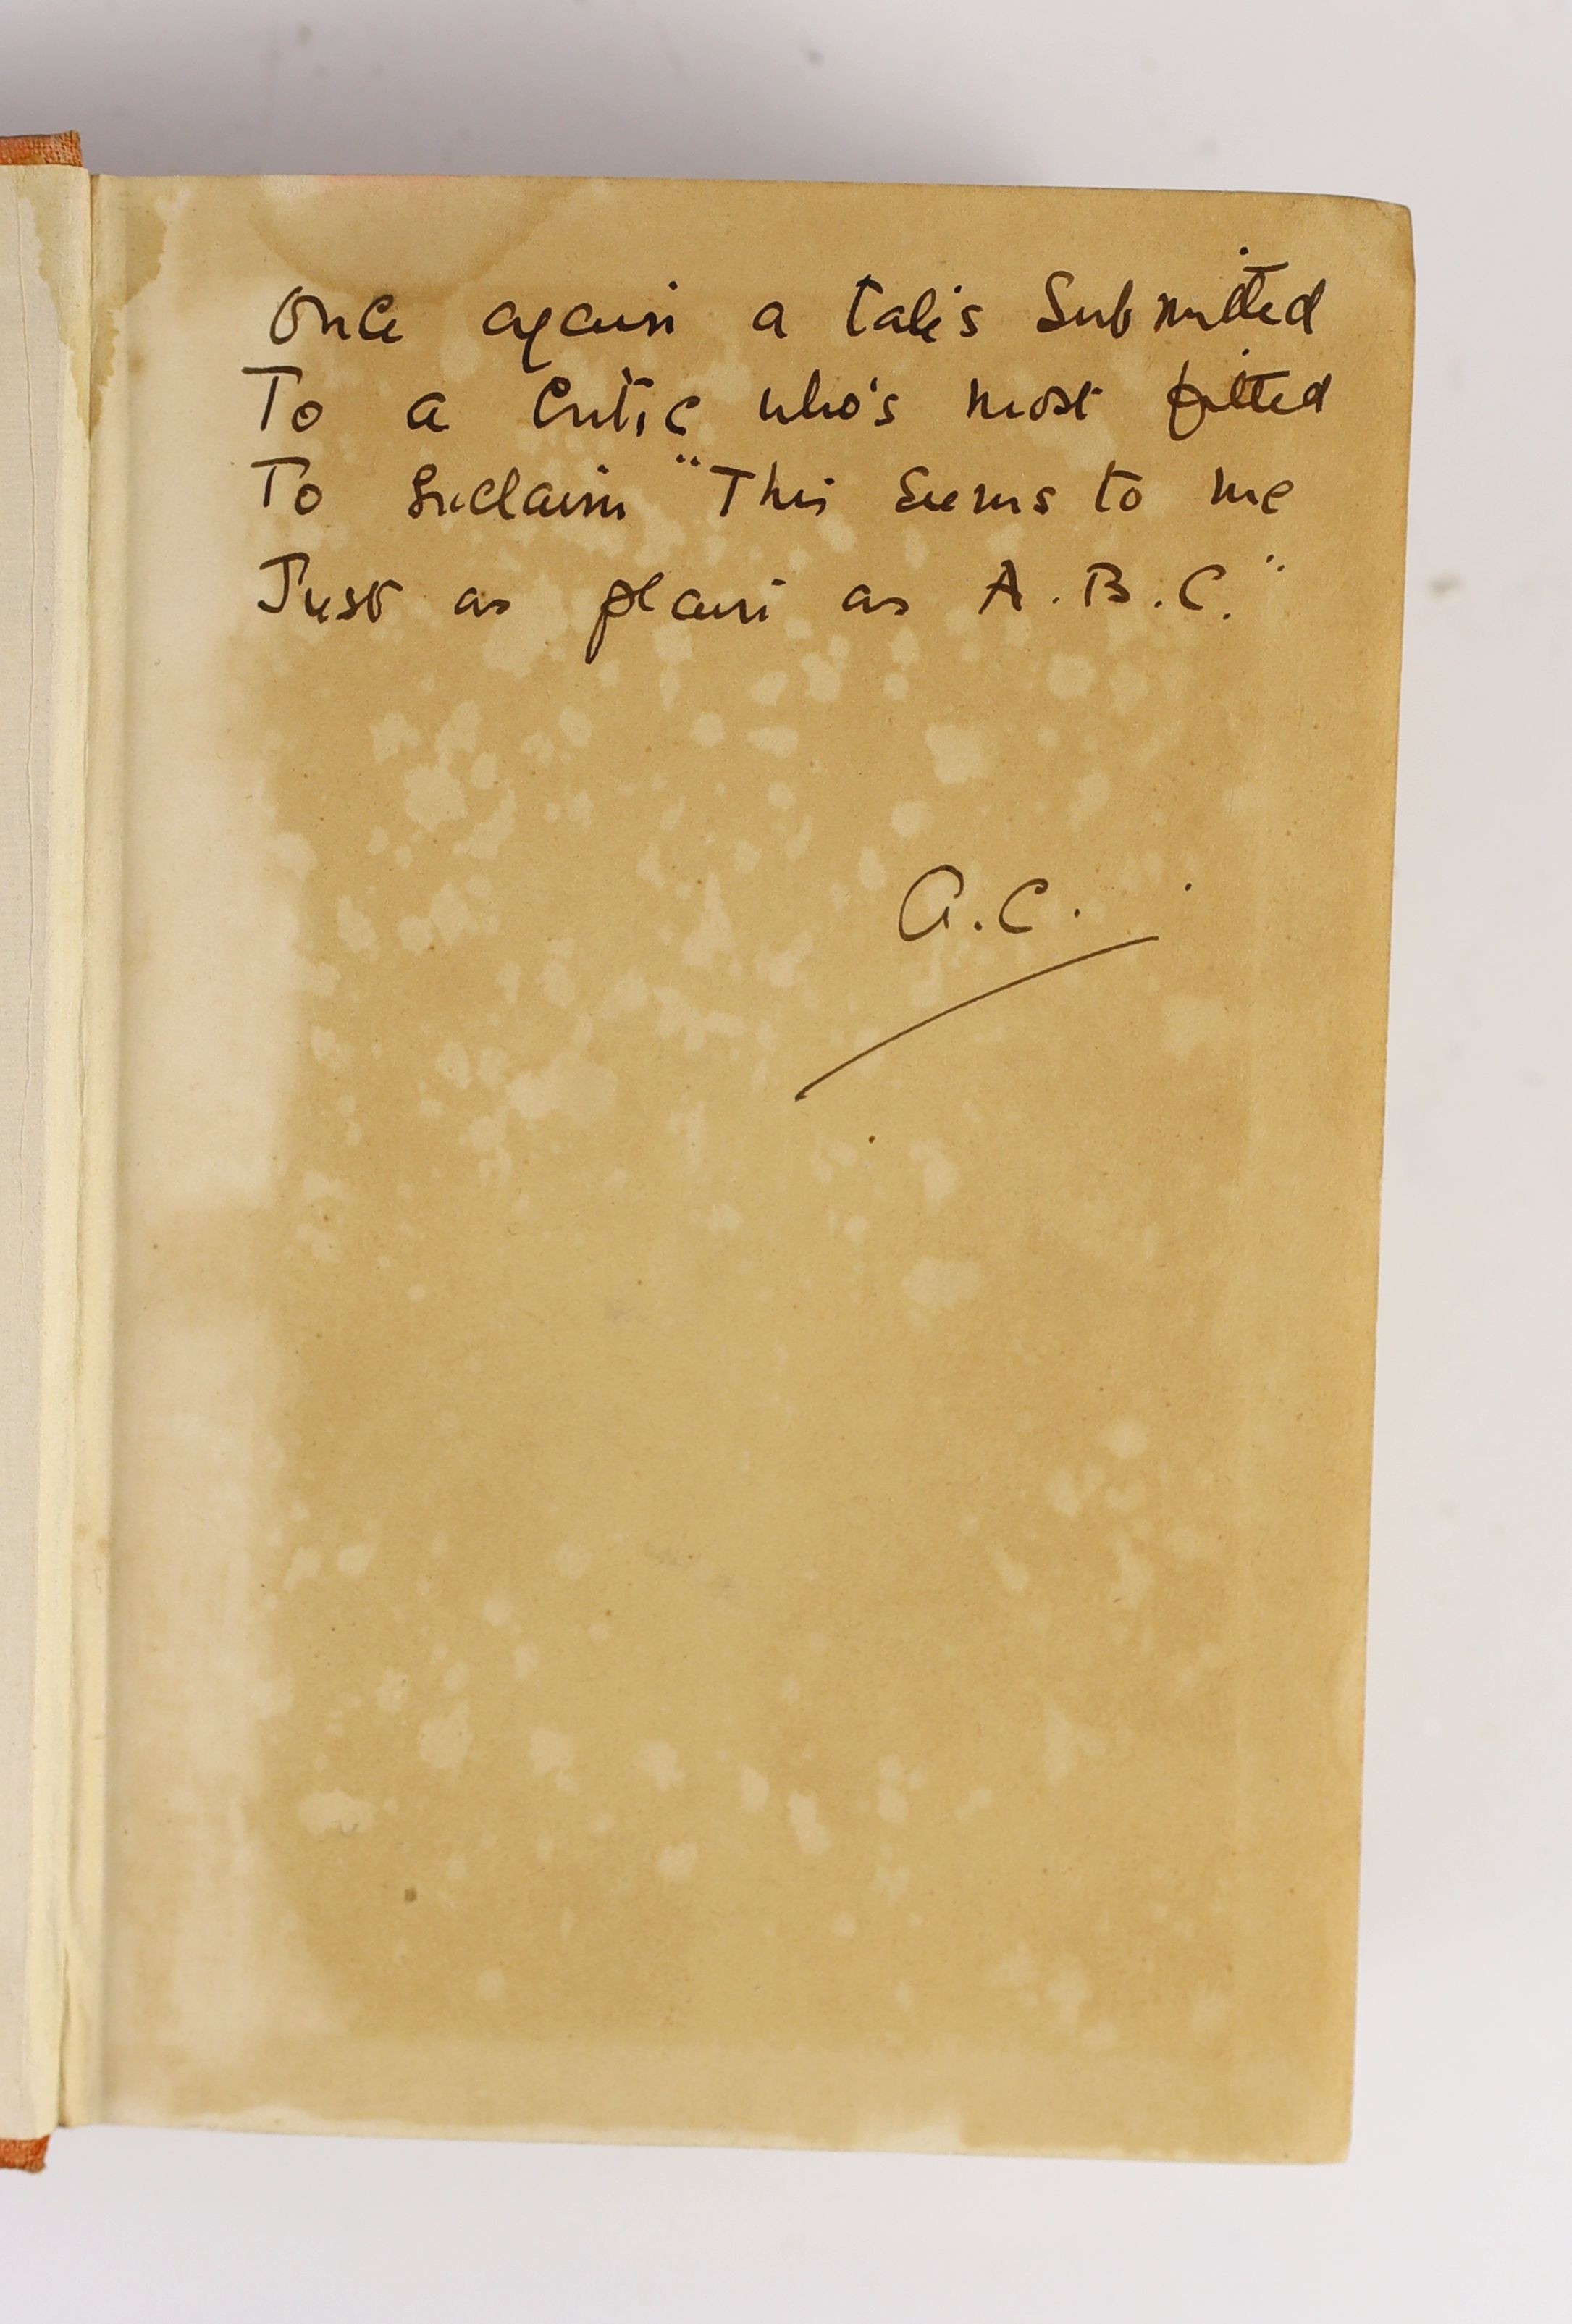 Once again a tale's submitted
To a Critic who's most fitted
To exclaim "This seems to me
Just as plain as A.B.C."
A.C.